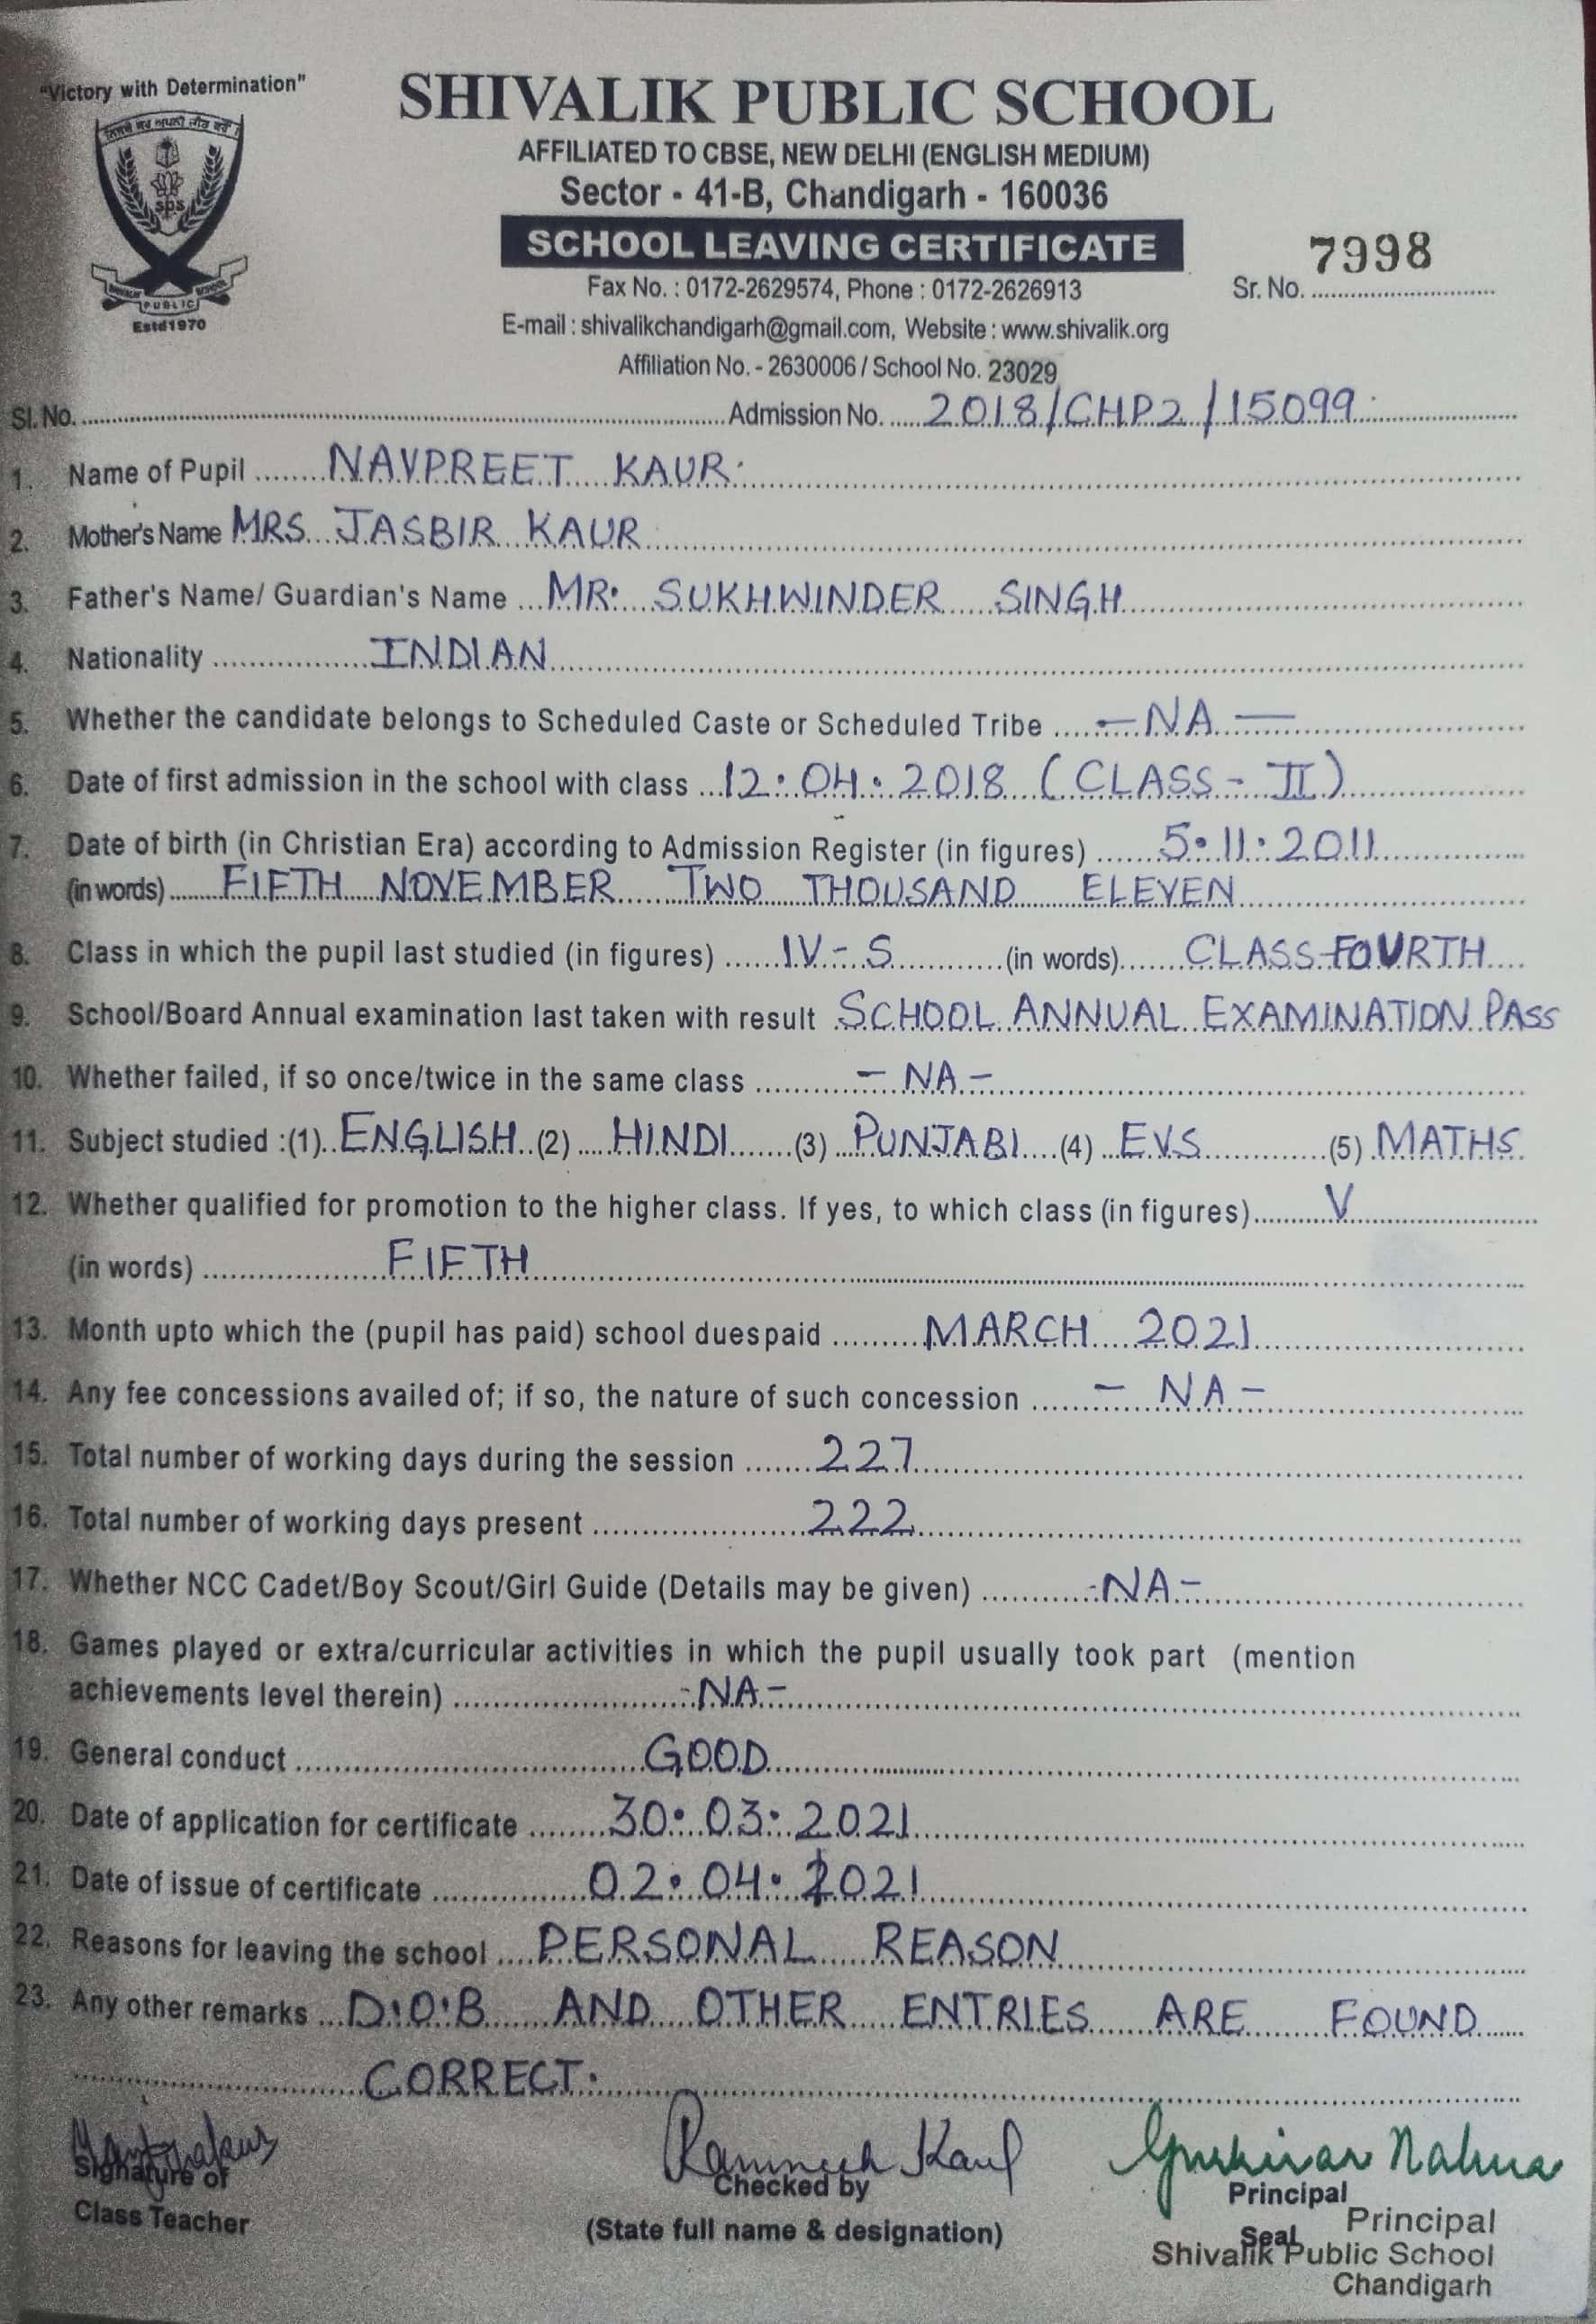 "Victory with Determination"
SHIVALIK PUBLIC SCHOOL
AFFILIATED TO CBSE, NEW DELHI (ENGLISH MEDIUM)
Sector - 41-B, Chandigarh - 160036
SCHOOL LEAVING CERTIFICATE
sps
PUBLIC
Estd1970
Fax No. : 0172-2629574, Phone : 0172-2626913
Sr. No. 7998
E-mail : shivalikchandigarh@gmail.com, Website : www.shivalik.org
Affiliation No. - 2630006 / School No. 23029
Sl. No. Admission No. 2018/CHP2/15099
1. Name of Pupil NAVPREET KAUR
2. Mother's Name MRS. JASBIR KAUR
3. Father's Name/ Guardian's Name MR. SUKHWINDER SINGH
4. Nationality INDIAN
5. Whether the candidate belongs to Scheduled Caste or Scheduled Tribe — NA —
6. Date of first admission in the school with class 12.04.2018 (CLASS - II)
7. Date of birth (in Christian Era) according to Admission Register (in figures) 5.11.2011
(in words) FIFTH NOVEMBER TWO THOUSAND ELEVEN
8. Class in which the pupil last studied (in figures) IV - S (in words) CLASS FOURTH
9. School/Board Annual examination last taken with result SCHOOL ANNUAL EXAMINATION PASS
10. Whether failed, if so once/twice in the same class - NA -
11. Subject studied :(1) ENGLISH (2) HINDI (3) PUNJABI (4) EVS (5) MATHS
12. Whether qualified for promotion to the higher class. If yes, to which class (in figures) V
(in words) FIFTH
13. Month upto which the (pupil has paid) school duespaid MARCH 2021
14. Any fee concessions availed of; if so, the nature of such concession - NA -
15. Total number of working days during the session 227
16. Total number of working days present 222
17. Whether NCC Cadet/Boy Scout/Girl Guide (Details may be given) -NA-
18. Games played or extra/curricular activities in which the pupil usually took part (mention
achievements level therein) -NA-
19. General conduct GOOD
20. Date of application for certificate 30.03.2021
21. Date of issue of certificate 02.04.2021
22. Reasons for leaving the school PERSONAL REASON
23. Any other remarks D.O.B AND OTHER ENTRIES ARE FOUND
CORRECT.
Kaur
Signature of
Class Teacher
Checked by
(State full name & designation)
Principal
Seal
Principal
Shivalik Public School
Chandigarh